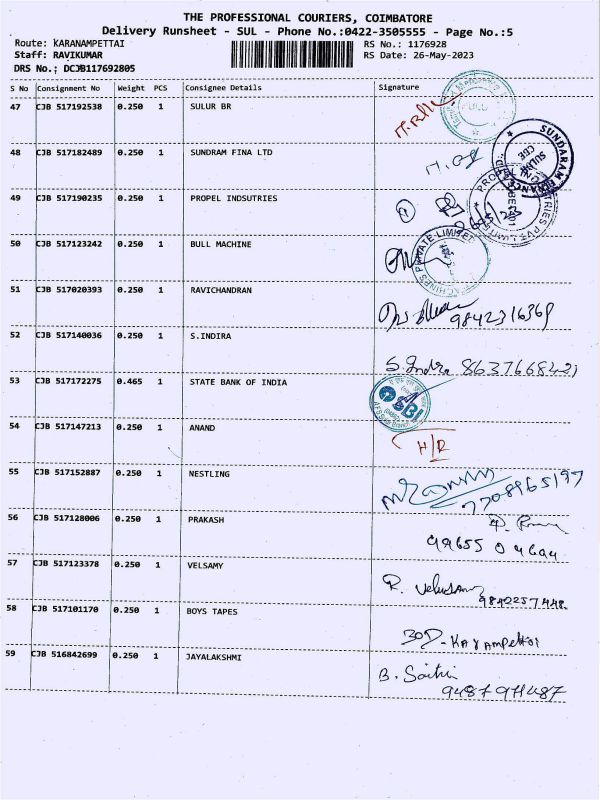 THE PROFESSIONAL COURIERS, COIMBATORE
Delivery Runsheet - SUL - Phone No.:0422-3505555 - Page No.:5
Route: KARANAMPETTAI RS No.: 1176928
Staff: RAVIKUMAR RS Date: 26-May-2023
DRS No.: DCJB117692805
S No Consignment No Weight PCS Consignee Details Signature
47 CJB 517192538 0.250 1 SULUR BR
48 CJB 517182489 0.250 1 SUNDRAM FINA LTD
SUNDARAM FINANCE
SULUR
CBE
49 CJB 517190235 0.250 1 PROPEL INDSUTRIES
50 CJB 517123242 0.250 1 BULL MACHINE
51 CJB 517020393 0.250 1 RAVICHANDRAN
9842316369
52 CJB 517140036 0.250 1 S.INDIRA
S. Indra 8637668421
53 CJB 517172275 0.465 1 STATE BANK OF INDIA
SBI
54 CJB 517147213 0.250 1 ANAND
H/R
55 CJB 517152887 0.250 1 NESTLING
7708965197
56 CJB 517128006 0.250 1 PRAKASH
57 CJB 517123378 0.250 1 VELSAMY
R. Velusamy
9840257448
58 CJB 517101170 0.250 1 BOYS TAPES
59 CJB 516842699 0.250 1 JAYALAKSHMI
B. Saithri